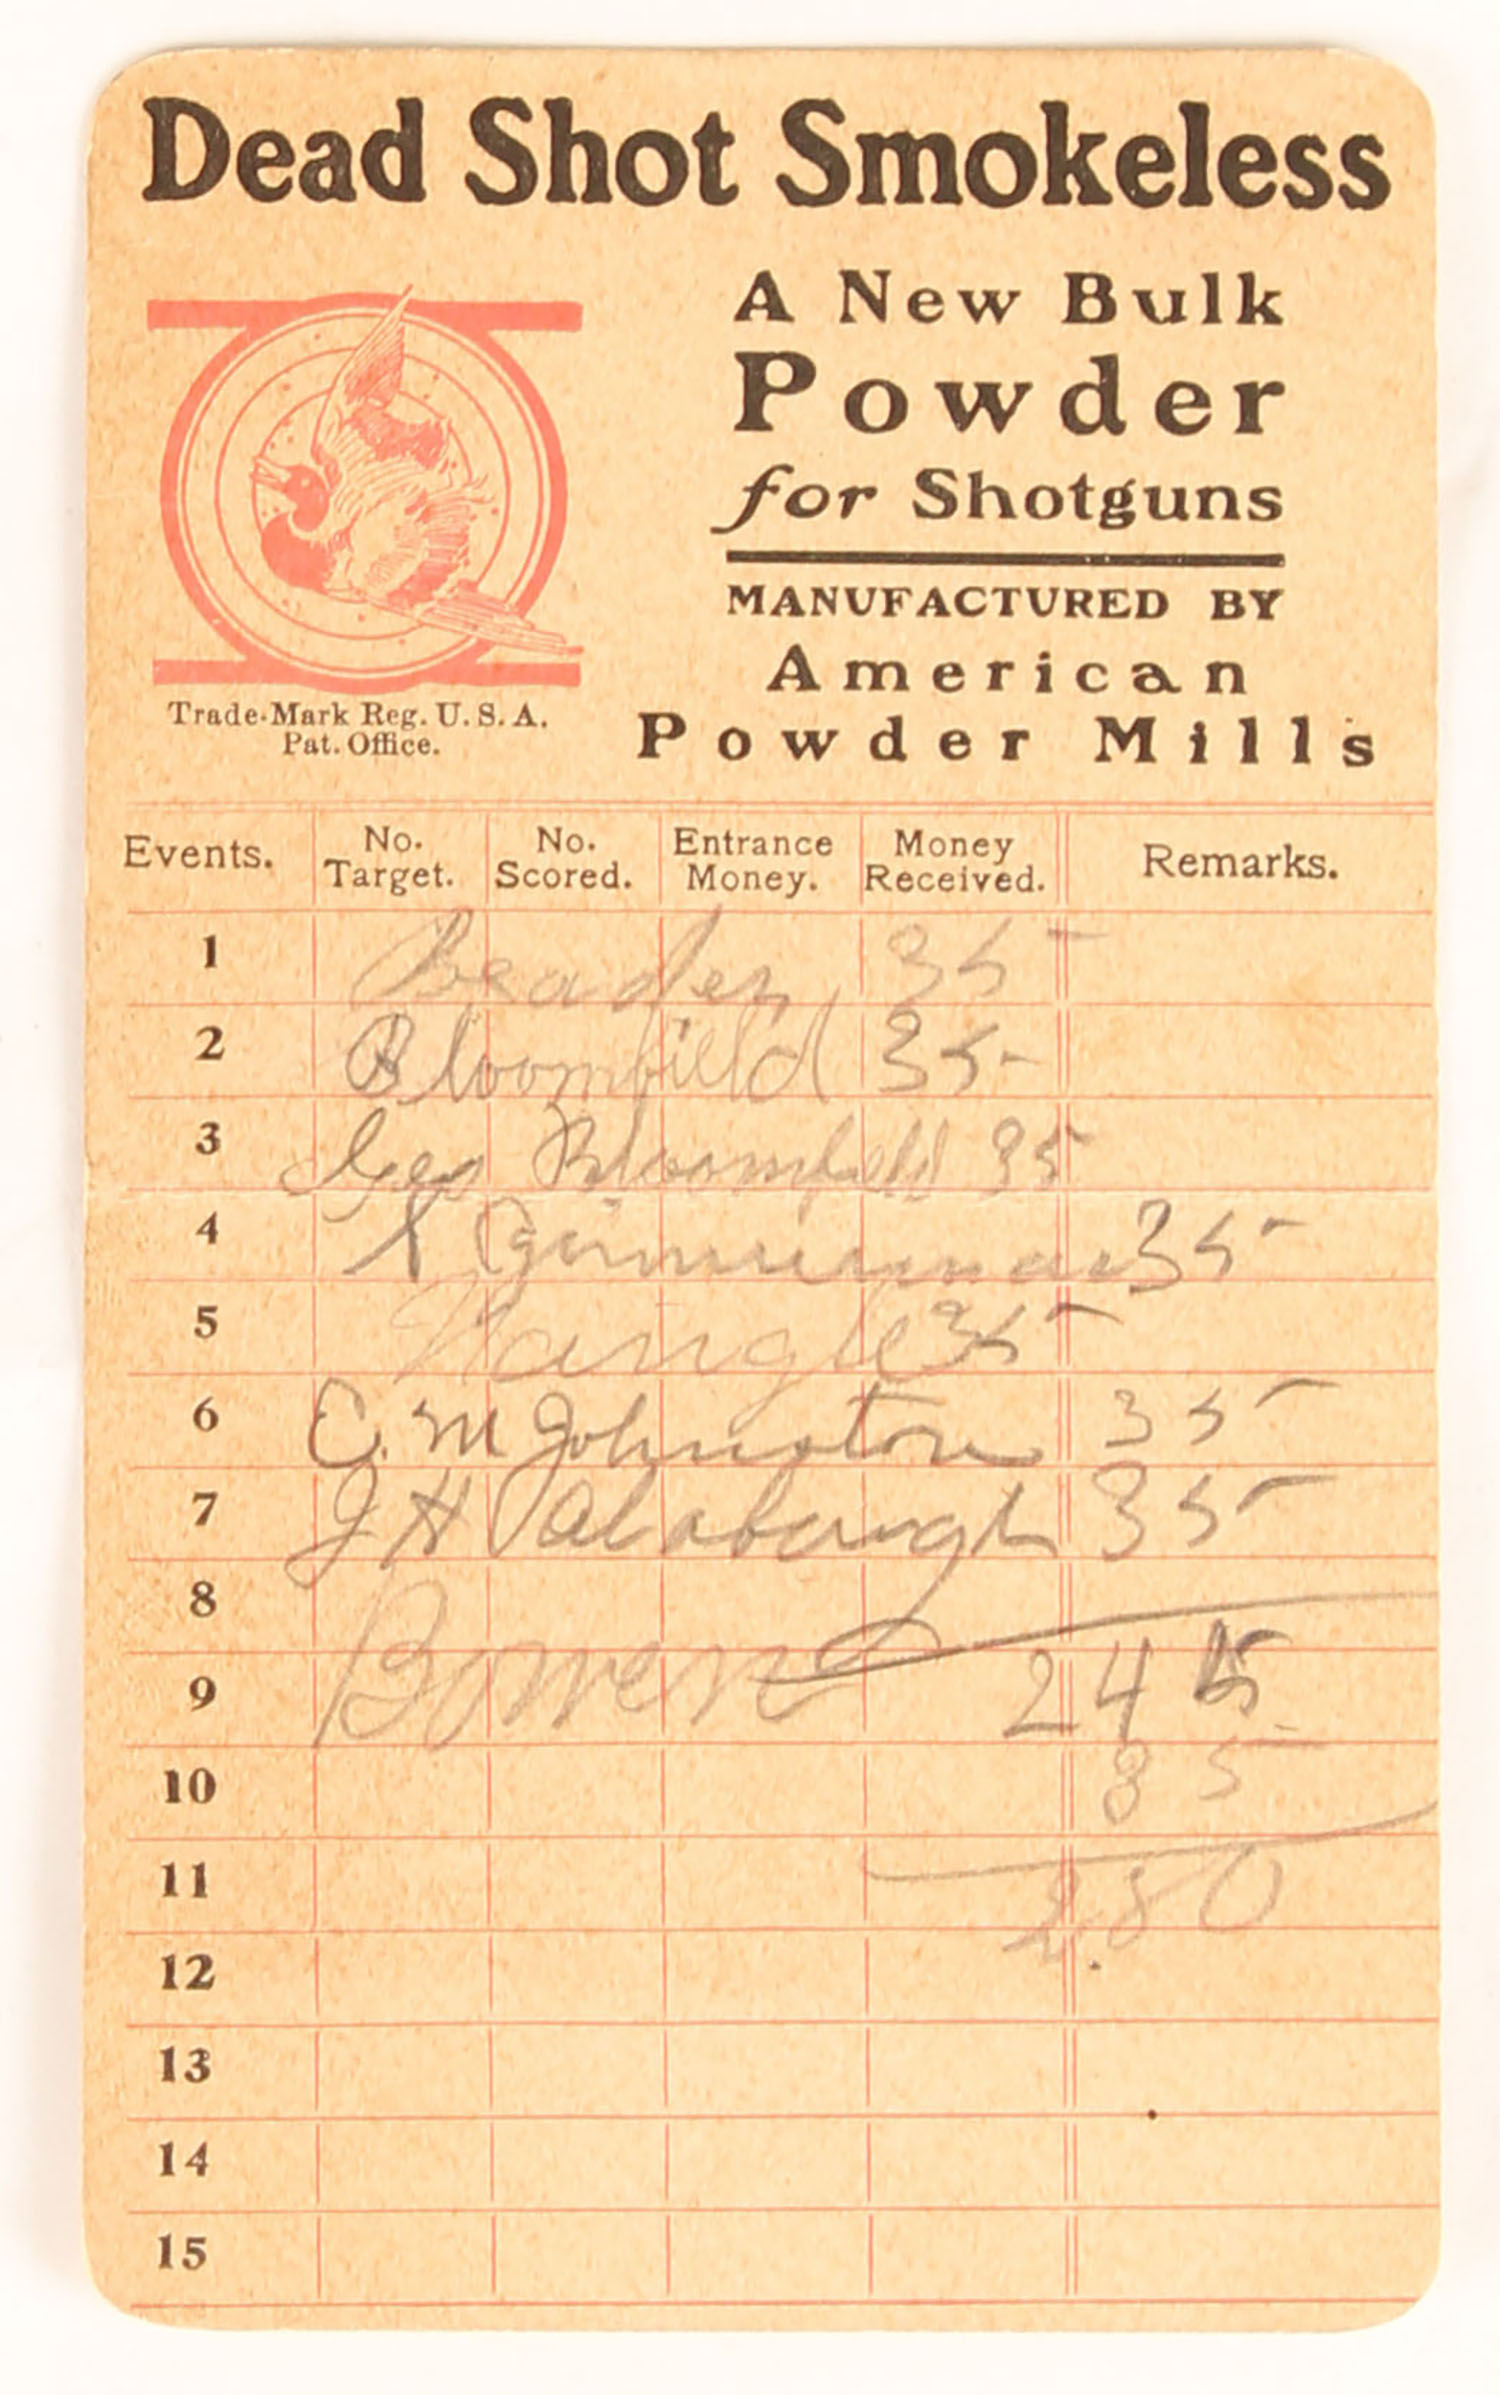 Dead Shot Smokeless
A New Bulk
Powder
for Shotguns
MANUFACTURED BY
American
Powder Mills
Trade-Mark Reg. U.S.A.
Pat. Office.
Events. No. Target. No. Scored. Entrance Money. Money Received. Remarks.
1 35
2 Bloomfield 35
3 Geo Bloomfield 35
4 35
5 35
6 C. M Johnston 35
7 J H 35
8
Bowen
9 245
10 35
11 2.80
12
13
14
15